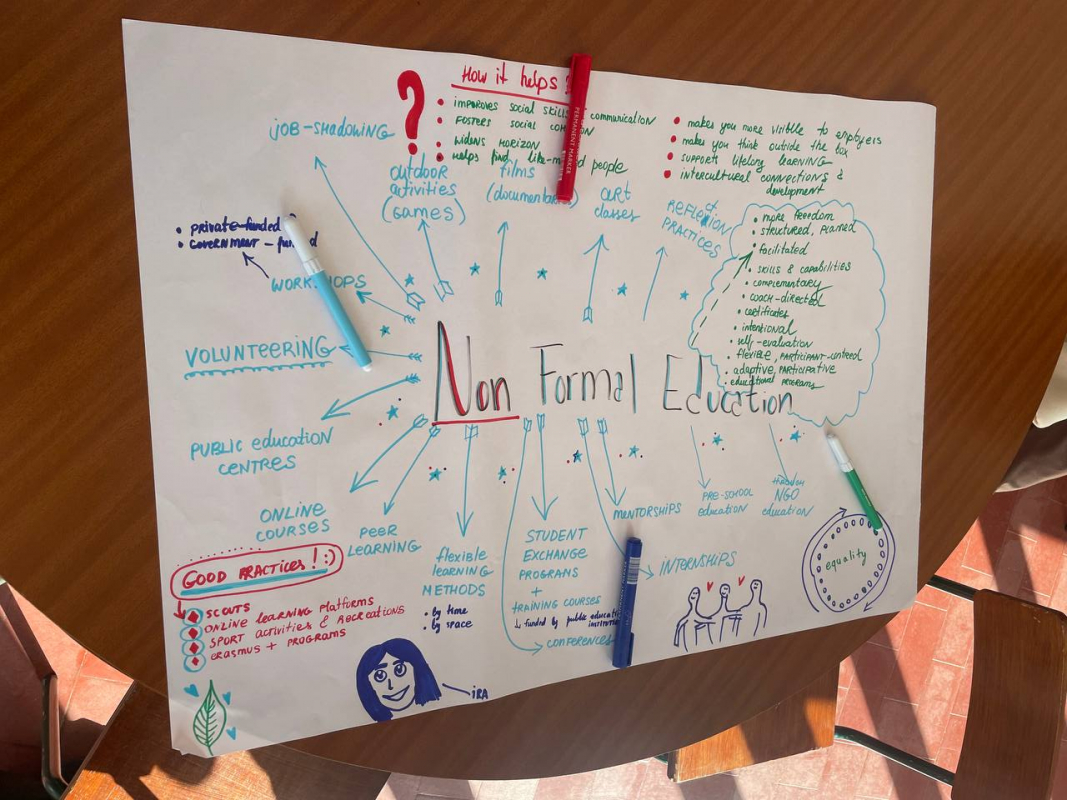 HOW it helps ?
• improves social skills communication
• FOSTERS social
• widens HORIZON
• Helps find like- people
• makes you more visible to employers
• makes you think outside the box
• supports lifelong learning
• intercultural connections &
development
job-shadowing
outdoor
activities
(GAMES)
films
ART
classes
REFLEXION
PRACTICES
• private-funded
• GOVERNMENT-
• more freedom
• structured, planned
• facilitated
• skills & capabilities
• complementary
• coach-directed
• certificates
• intentional
• self-evaluation
• flexible, PARTICIPANT-
• adaptive, PARTICIPATIVE
educational programs
VOLUNTEERING
Non Formal Education
PUBLIC education
CENTRES
ONLINE
COURSES
PEER
LEARNING
flexible
learning
METHODS
• by time
• by space
STUDENT
EXCHANGE
PROGRAMS
+
TRAINING COURSES
↳ funded by public
CONFERENCES
MENTORSHIPS
INTERNSHIPS
PRE-SCHOOL
education
through
NGO
education
equality
GOOD PRACTICES! :)
SCOUTS
ONLINE learning platforms
SPORT activities & RECREATIONS
ERASMUS + PROGRAMS
iRA
PERMANENT MARKER